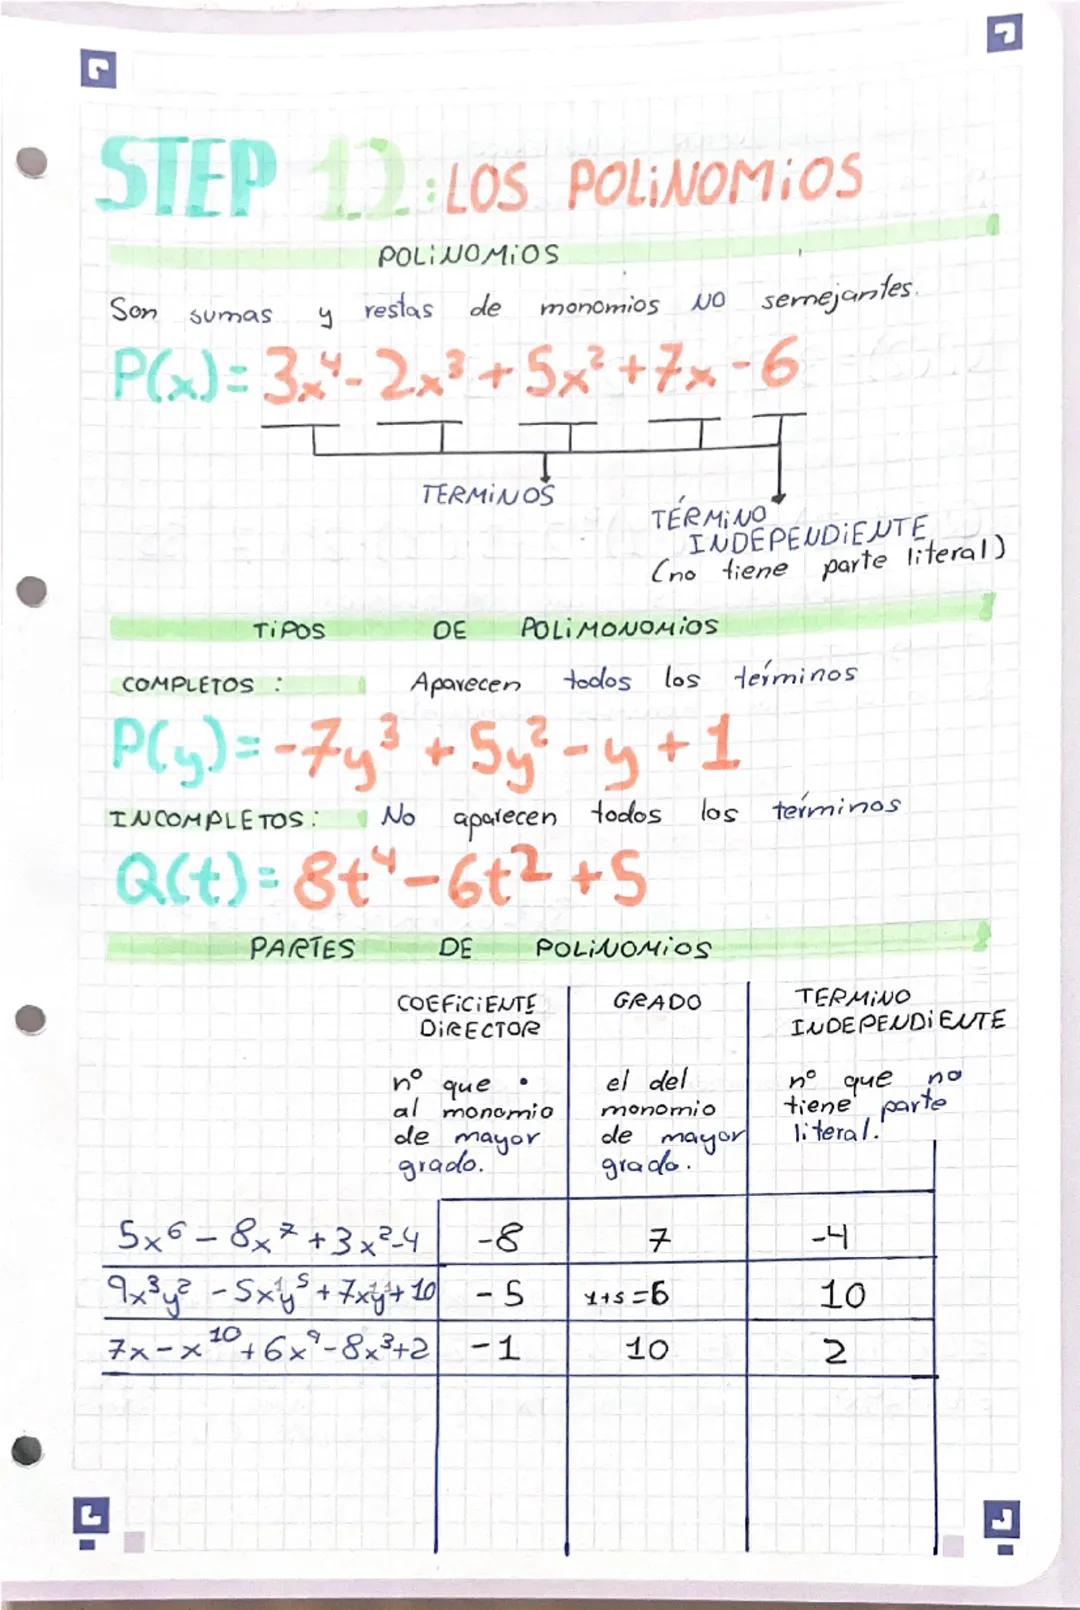 STEP 12: LOS POLINOMIOS
POLINOMIOS
Son sumas y restas de monomios NO semejantes.
P(x)= 3x⁴- 2x³ + 5x² +7x -6
TERMINOS
TÉRMINO
INDEPENDIENTE
(no tiene parte literal)
TIPOS DE POLIMONOMIOS
COMPLETOS : Aparecen todos los términos
P(y)= -7y³ + 5y² - y + 1
INCOMPLETOS: No aparecen todos los términos
Q(t)= 8t⁴-6t² +5
PARTES DE POLINOMIOS
COEFICIENTE DIRECTOR GRADO TERMINO INDEPENDIENTE
nº que • al monomio de mayor grado. el del monomio de mayor grado. nº que no tiene parte literal.
5x⁶ - 8x⁷ +3x²-4 -8 7 -4
9x³y² -5x¹y⁵ +7x¹y¹+ 10 -5 1+5=6 10
7x-x¹⁰+6x⁹-8x³+2 -1 10 2